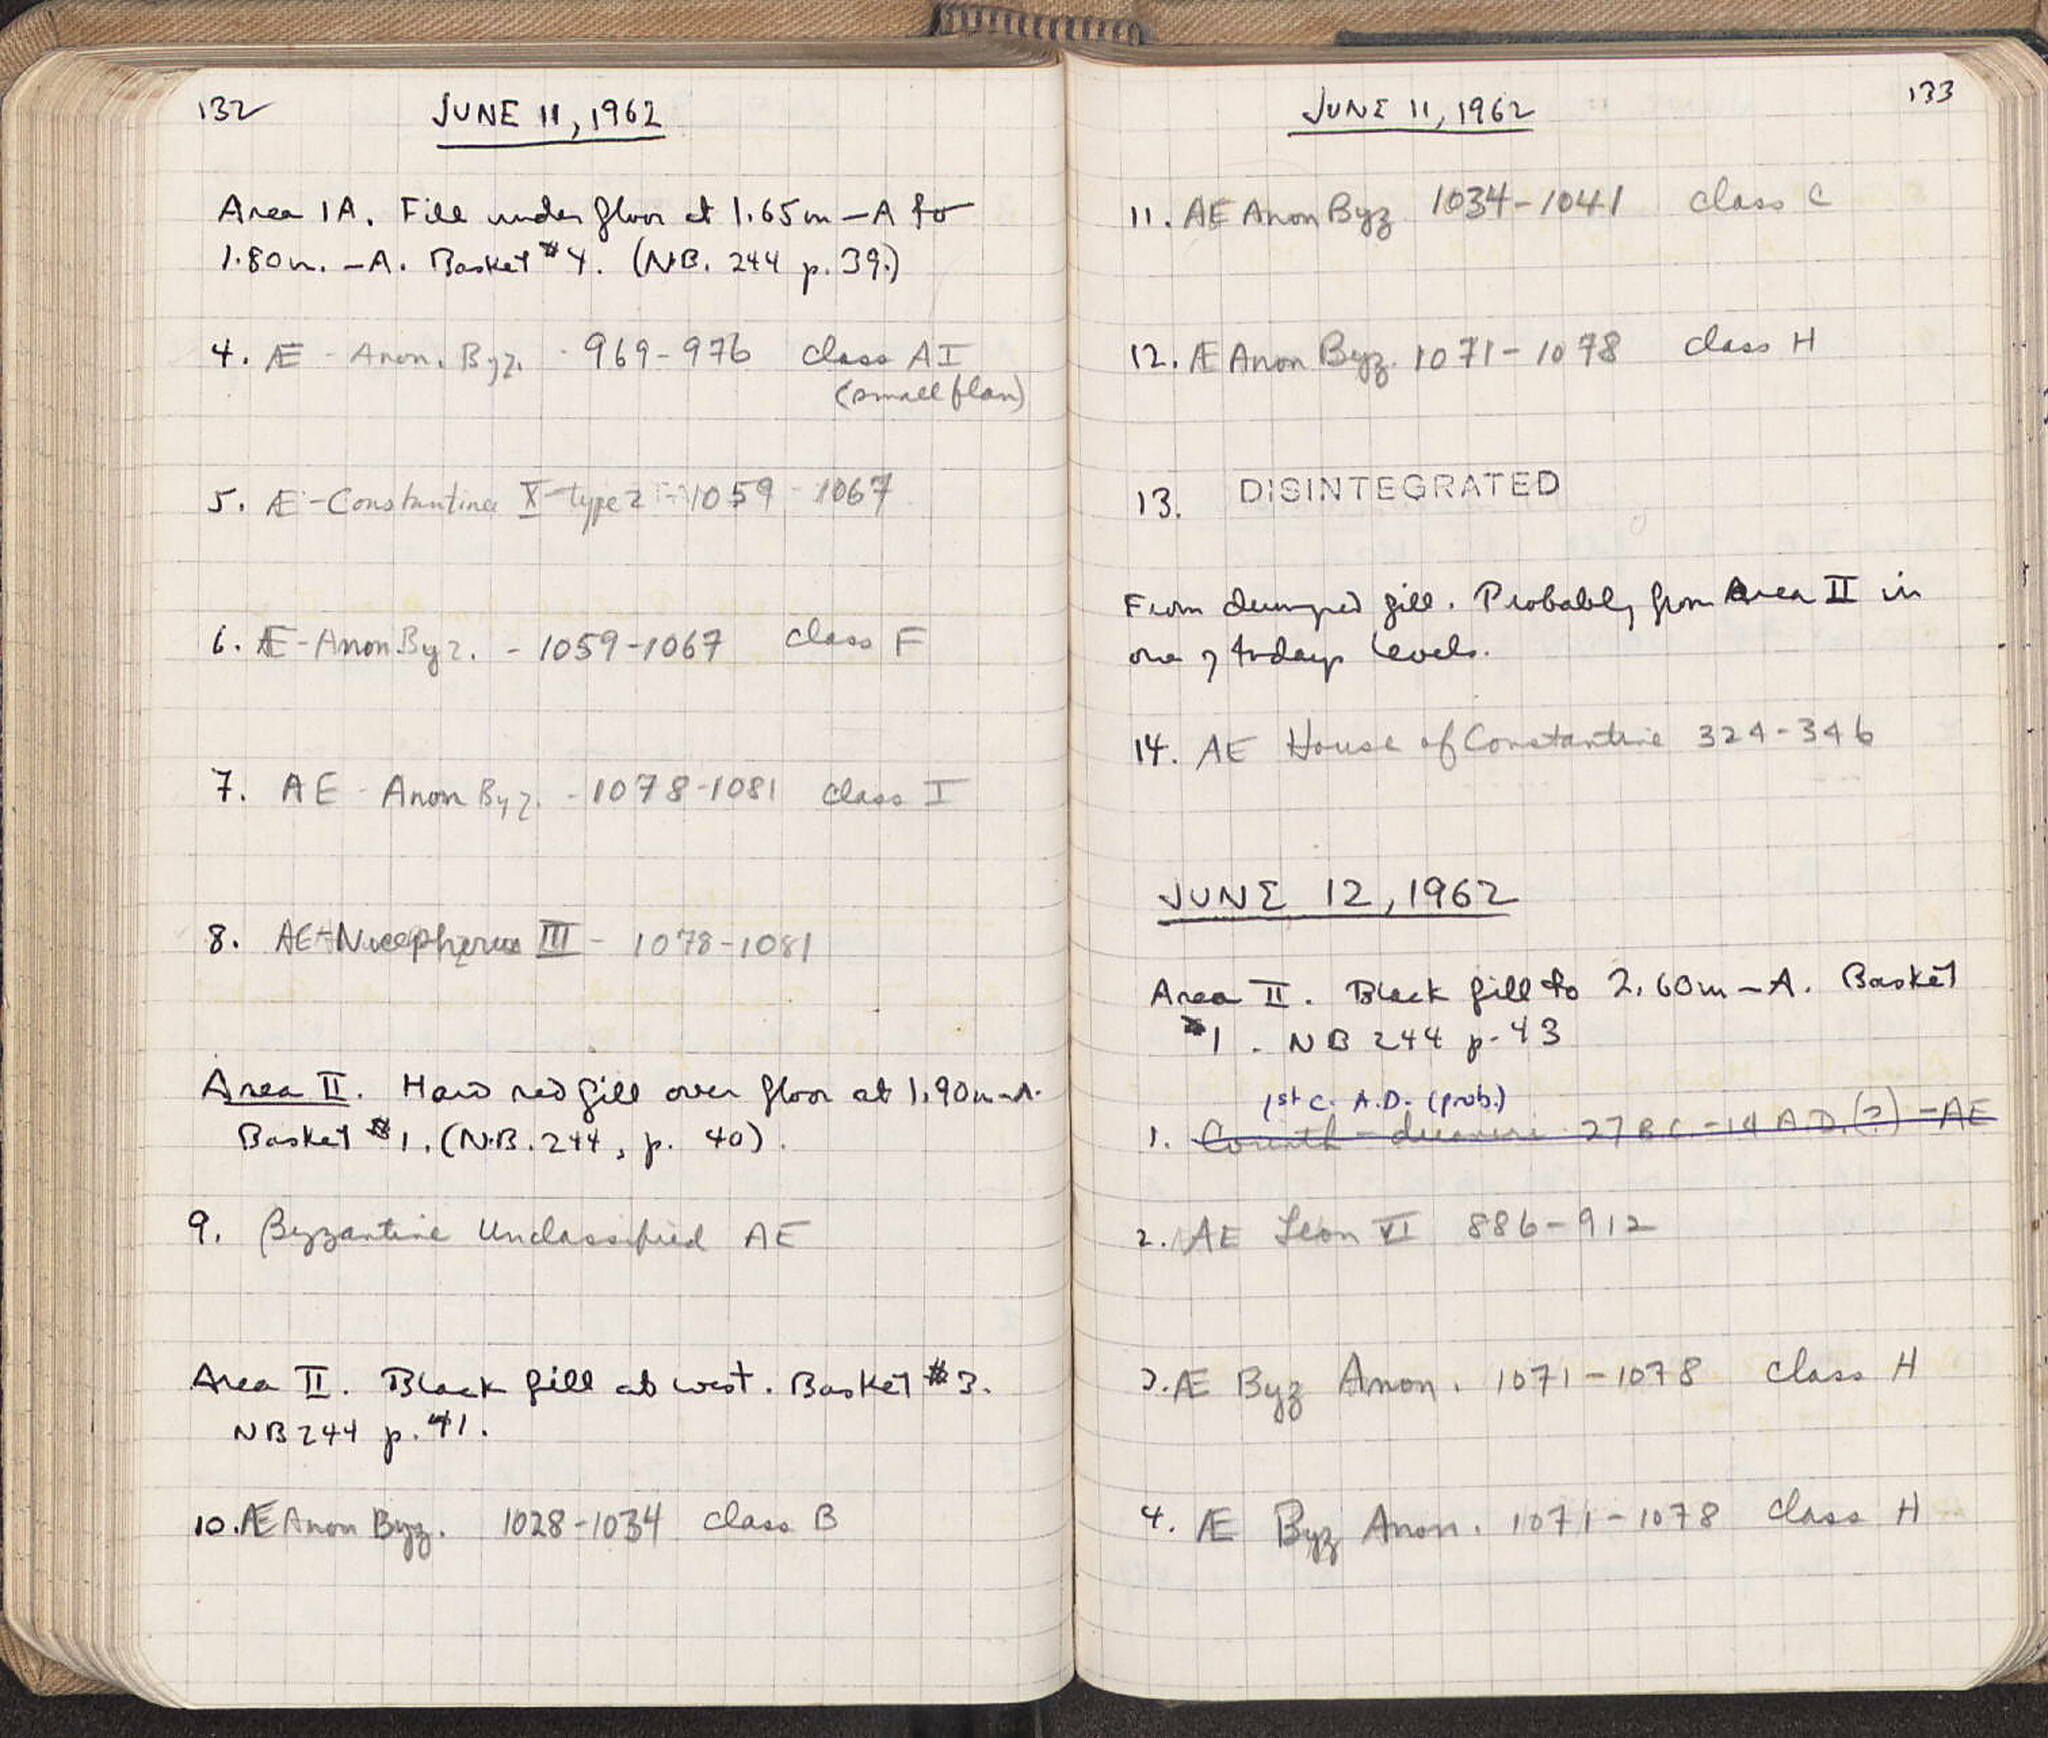 132
JUNE 11, 1962
Area 1A. Fill under floor at 1.65m -A to
1.80m. -A. Basket #4. (NB. 244 p. 39.)
4. Æ - Anon. Byz. - 969-976 class AI
(small flan)
5. Æ - Constantine X - type 2 1059 - 1067
6. Æ - Anon Byz. - 1059-1067 class F
7. AE - Anon Byz. - 1078-1081 class I
8. AE - Nicephorus III - 1078-1081
Area II. Hard red fill over floor at 1.90m-A.
Basket #1. (N.B. 244, p. 40).
9. Byzantine Unclassified AE
Area II. Black fill at west. Basket #3.
NB 244 p. 41.
10. Æ Anon Byz. 1028-1034 class B
133
JUNE 11, 1962
11. AE Anon Byz 1034-1041 class C
12. Æ Anon Byz. 1071-1078 class H
13. DISINTEGRATED
From dumped fill. Probably from Area II in
one of todays levels.
14. AE House of Constantine 324-346
JUNE 12, 1962
Area II. Black fill to 2.60m-A. Basket
#1. NB 244 p. 43
1st C. A.D. (prob.)
1. Corinth - 27 B.C.-14 A.D.(?) - AE
2. AE Leon VI 886-912
3. Æ Byz Anon. 1071-1078 class H
4. Æ Byz Anon. 1071-1078 class H